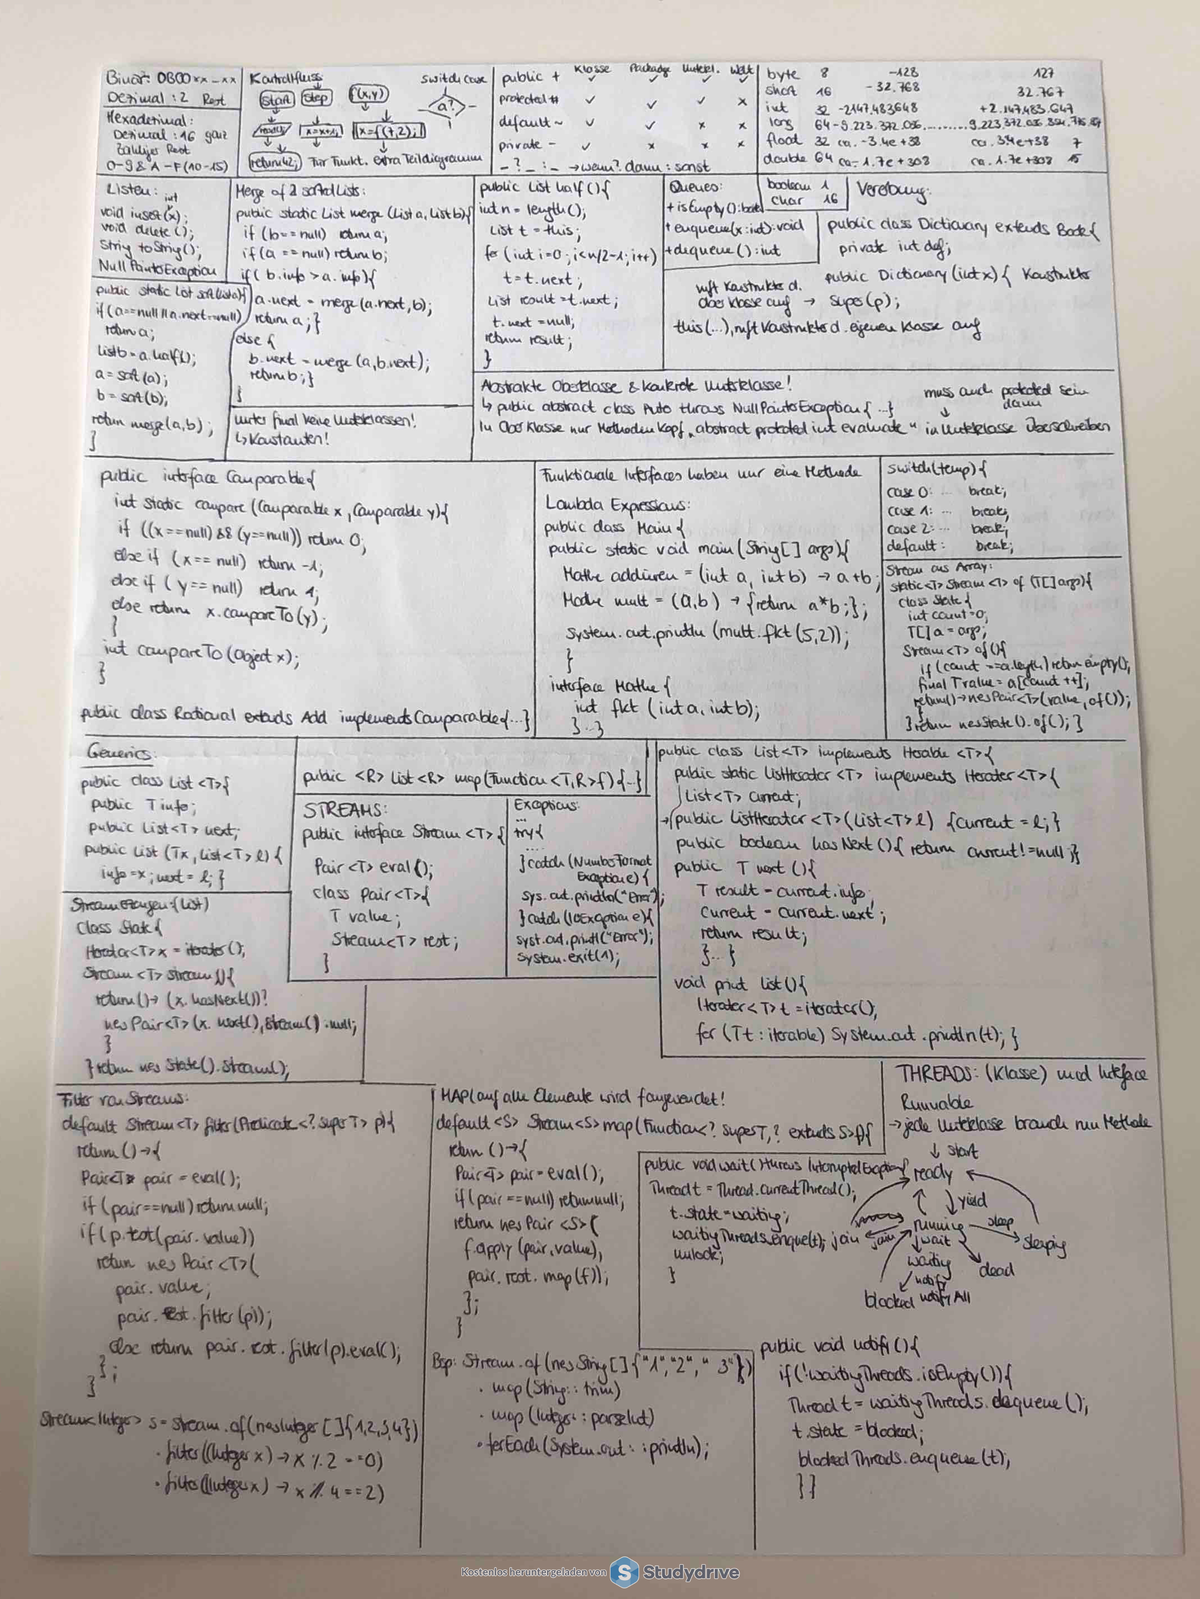 Binär: 0B00xx_xx
Dezimal : 2 Rest
Hexadezimal:
Dezimal : 16 ganz
Zahliger Rest
0-9 & A-F (10-15)
Kontrollfluss
start
step
f(x,y)
switch case
a?
x=x+1;
x=f(7,2);
return 42;
Für Funkt. extra Teildiagramm
Klasse Package Unterkl. Welt
public + ✓ ✓ ✓ ✓
protected # ✓ ✓ ✓ x
default ~ ✓ ✓ x x
private - ✓ x x x
- ? _ : _ → wenn? dann : sonst
byte 8 -128 127
short 16 -32.768 32.767
int 32 -2147.483648 +2.147.483.647
long 64
float 32 ca. -3.4e+38 ca. 3.4e+38 7
double 64 ca. 1.7e+308 ca. 1.7e+308 15
boolean 1
char 16
Listen:
int
void insert(x);
void delete();
String toString();
NullPointerException
public static List sort(List a){
if (a==null || a.next==null)
return a;
List b = a.half();
a = sort(a);
b = sort(b);
return merge(a,b);
}
Merge of 2 sorted Lists:
public static List merge (List a, List b){
if (b==null) return a;
if (a == null) return b;
if( b.info > a.info){
a.next = merge(a.next, b);
return a; }
else {
b.next = merge(a,b.next);
return b;}
}
unter final keine Unterklassen!
↳ Konstanten!
public List half(){
int n = length();
List t = this;
for (int i=0; i<n/2-1; i++)
t = t.next;
List result = t.next;
t.next = null;
return result;
}
Queues:
+ isEmpty(): bool
+ enqueue(x:int): void
+ dequeue(): int
Vererbung:
public class Dictionary extends Book{
private int def;
public Dictionary (int x){ Konstruktor
ruft Konstruktor d.
Oberklasse auf → super(p);
this(...), ruft Konstruktor d. eigenen Klasse auf
Abstrakte Oberklasse & konkrete Unterklasse!
↳ public abstract class Auto throws NullPointerException{...}
muss auch protected sein
dann
In Ober Klasse nur Methoden Kopf „abstract protected int evaluate" in Unterklasse Überschreiben
public interface Comparable{
int static compare (Comparable x, Comparable y){
if ((x==null) && (y==null)) return 0;
else if (x == null) return -1;
else if ( y == null) return 1;
else return x.compareTo(y);
}
int compareTo (Object x);
}
public class Rational extends Add implements Comparable{...}
Funktionale Interfaces haben nur eine Methode
Lambda Expressions:
public class Main {
public static void main (String[] args){
Mathe addieren = (int a, int b) → a+b;
Mathe mult = (a,b) → {return a*b;};
System.out.println (mult.fkt(5,2));
}
interface Mathe {
int fkt (int a, int b);
}...}
switch(temp){
case 0: ... break;
case 1: ... break;
case 2: ... break;
default: break;
Stream aus Array:
static<T> Stream <T> of (T[] args){
class State {
int count=0;
T[] a = args;
Stream<T> of(){
if (count ==a.length) return empty();
final T value = a[count ++];
return()→new Pair<T>(value, of());
}
} return new State().of(); }
Generics:
public class List <T>{
public T info;
public List<T> next;
public List (T x, List<T> l) {
info = x; next = l; }
public <R> List <R> map(Function <T,R> f) {...}
STREAMS:
public interface Stream <T> {
Pair <T> eval();
class Pair <T>{
T value;
Stream<T> rest;
}
Exceptions:
...
try{
...
} catch (NumberFormat
Exception e) {
sys.out.println("Error");
} catch (IOException e){
syst.out.printl("Error");
System.exit(1);
public class List<T> implements Iterable <T>{
public static ListIterator <T> implements Iterator <T>{
List<T> current;
→ public ListIterator <T>(List<T> l) {current = l;}
public boolean hasNext(){ return current!=null;}
public T next(){
T result = current.info;
current = current.next;
return result;
}...}
void print list(){
Iterator<T> t = iterator();
for (T t : iterable) System.out.println(t); }
Stream Erzeugen: (List)
Class State {
Iterator<T> x = iterator();
Stream <T> stream(){
return()→ (x.hasNext())?
new Pair<T>(x.next(), stream()) :null;
}
} return new State().stream();
Filter von Streams:
default Stream<T> filter(Predicate<? super T> p){
return ()→{
Pair<T> pair = eval();
if (pair==null) return null;
if (p.test(pair.value))
return new Pair<T>(
pair.value;
pair.rest.filter(p));
else return pair.rest.filter(p).eval();
};
}
Stream<Integer> s = stream.of(new Integer []{1,2,3,4})
.filter((Integer x) → x % 2 == 0)
.filter((Integer x) → x % 4 == 2)
MAP (auf alle Elemente wird f angewendet!
default <S> Stream<S> map (Function<? super T, ? extends S> f){
return ()→{
Pair<T> pair = eval();
if (pair ==null) return null;
return new Pair <S>(
f.apply(pair.value),
pair.rest.map(f));
};
}
Bsp: Stream.of (new String[]{"1","2"," 3"})
.map(String::trim)
.map(Integer::parseInt)
.forEach(System.out::println);
THREADS: (Klasse) und Interface
Runnable
→ jede Unterklasse brauch run Methode
public void wait() throws InterruptedException{
Thread t = Thread.currentThread();
t.state = waiting;
waitingThreads.enque(t);
unlock;
}
start
ready
yield
running
sleep
sleeping
join
join
wait
waiting
dead
notify
notifyAll
blocked
public void notify(){
if(!waitingThreads.isEmpty()){
Thread t = waitingThreads.dequeue();
t.state = blocked;
blockedThreads.enqueue(t);
}}
Kostenlos heruntergeladen von Studydrive